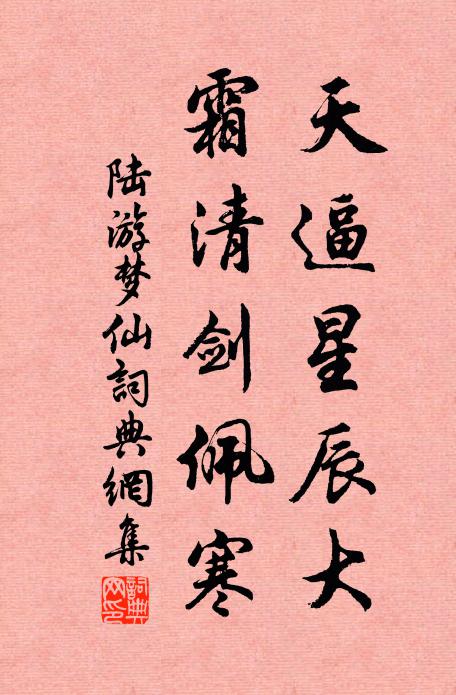 天逼星辰大
霜清剑佩寒
陆游梦仙詞典網集
詞典網印